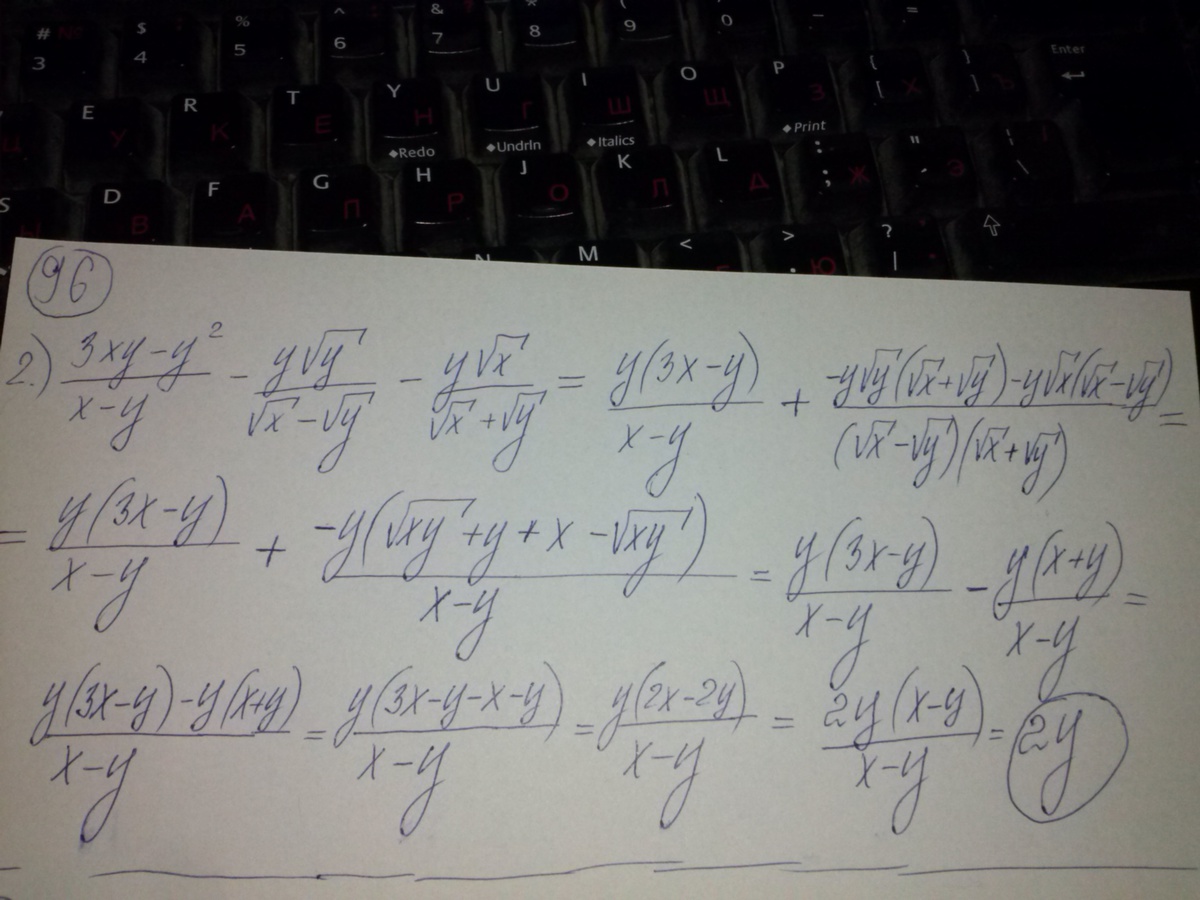 # № $ % ^ & * ( ) _ =
3 4 5 6 7 8 9 0
E У R К T Е Y Н U Г I Ш O Щ P З { [ Х } ] Ъ Enter
◆Redo ◆Undrln ◆Italics ◆Print
S Ы D В F А G П H Р J О K Л L Д : ; Ж " ' Э | \
N M < > . Ю ? /
96
2.) (3xy-y²)/(x-y) - (y√y)/(√x-√y) - (y√x)/(√x+√y) = (y(3x-y))/(x-y) + (-y√y(√x+√y)-y√x(√x-√y))/((√x-√y)(√x+√y)) =
= (y(3x-y))/(x-y) + (-y(√xy+y+x-√xy))/(x-y) = (y(3x-y))/(x-y) - (y(x+y))/(x-y) =
(y(3x-y)-y(x+y))/(x-y) = (y(3x-y-x-y))/(x-y) = (y(2x-2y))/(x-y) = (2y(x-y))/(x-y) = 2y